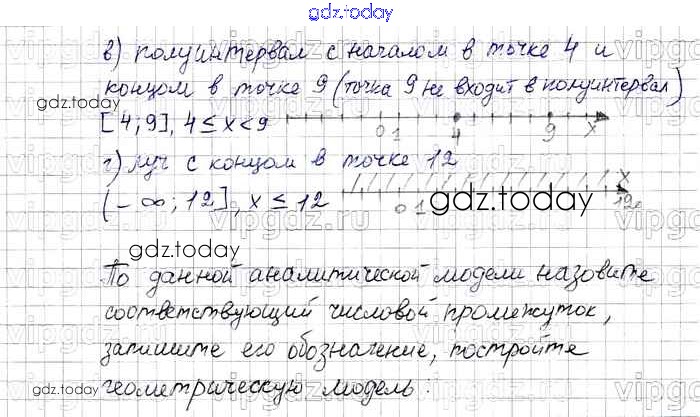 gdz.today
в) полуинтервал с началом в точке 4 и
концом в точке 9 (точка 9 не входит в полуинтервал)
gdz.today
[4;9], 4 ≤ x < 9 0 1 4 9 x
г) луч с концом в точке 12
(-∞; 12], x ≤ 12 0 1 12 x
gdz.today
gdz.today
По данной аналитической модели назовите
соответствующий числовой промежуток,
запишите его обозначение, постройте
gdz.today
геометрическую модель: